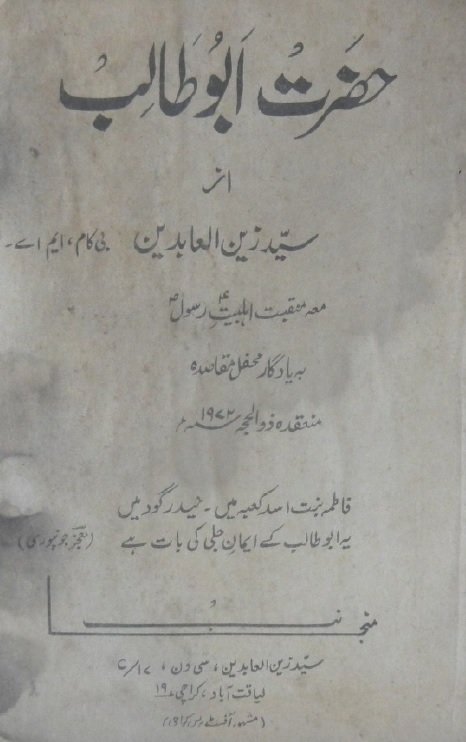 حضرت ابُو طالبؑ
از
سیّد زین العابدین بی کام، ایم اے۔
معہ منقبت اہلبیتؑ رسولؐ
بہ یادگار محفل مقاصدہ
منعقدہ ذوالحجہ ۱۹۷۲ء
فاطمہ بنت اسد کعبہ میں۔ حیدر گود میں
یہ ابو طالب کے ایمانِ جلی کی بات ہے (معجزؔ جونپوری)
منجانب
سیّد زین العابدین، سی ون، ۱۷/۶
لیاقت آباد، کراچی ۱۹
(مشہور آفسٹ پریس کراچی)